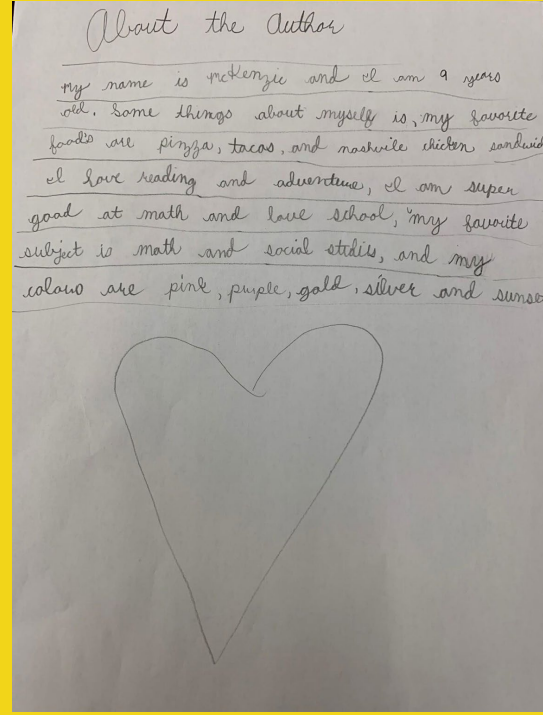 About the Author
my name is mcKenzie and I am 9 years
old. Some things about myself is, my favorite
food's are pizza, tacos, and nashvile chicken sandwid
I love reading and adventure, I am super
good at math and love school, my favorite
subject is math and social stdis, and my
colors are pink, purple, gold, silver and sunse